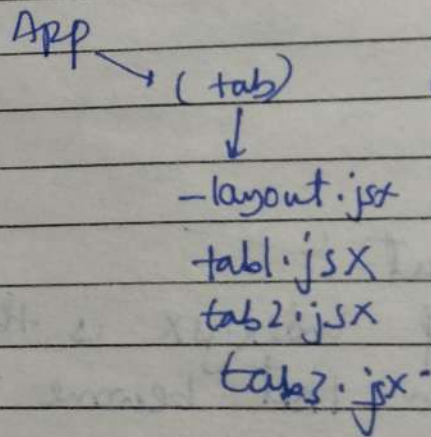 App
(tab)
-layout.jsx
tab1.jsx
tab2.jsx
tab3.jsx